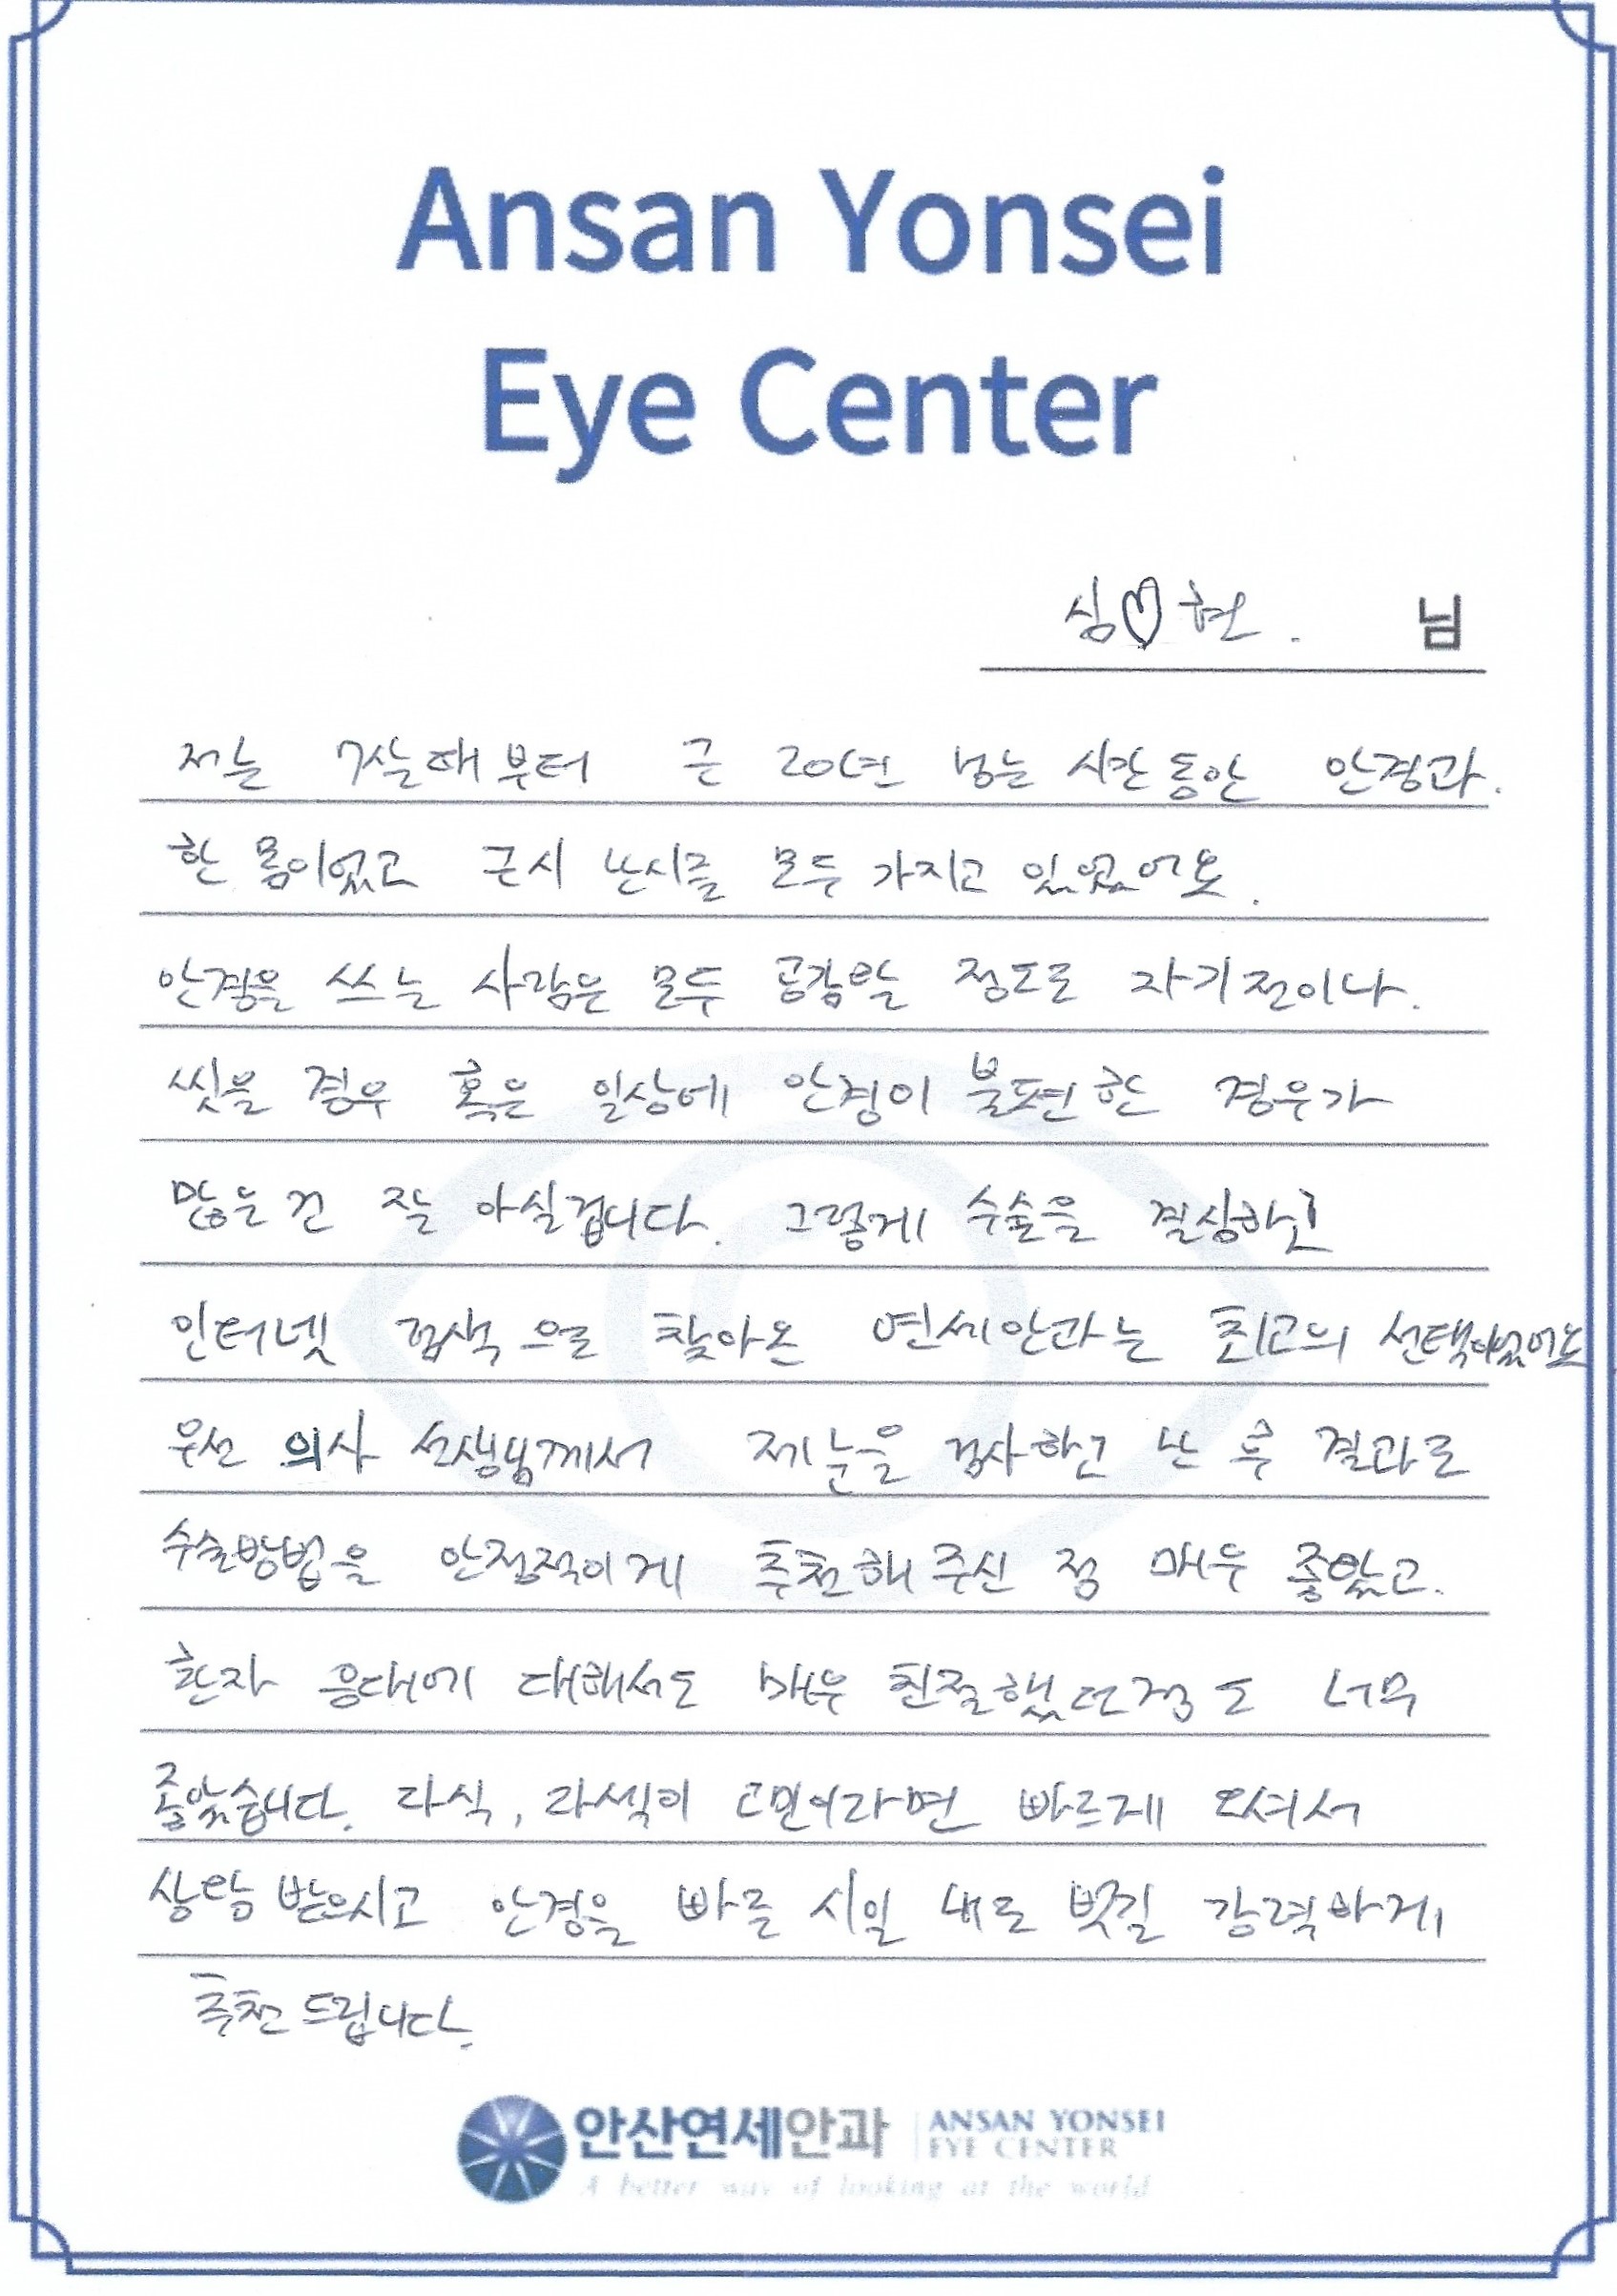 Ansan Yonsei
Eye Center
심♡현. 님
저는 7살때부터 근 20년 넘는 시간동안 안경과.
한 몸이었고 근시 난시를 모두 가지고 있었어요.
안경을 쓰는 사람은 모두 공감할 정도로 자기전이나.
씻을 경우 혹은 일상에 안경이 불편한 경우가
많은건 잘 아실겁니다. 그렇게 수술을 결심하고
인터넷 검색으로 찾아온 연세안과는 최고의 선택이었어요
우선 의사 선생님께서 제눈을 검사하고 난 후 결과로
수술방법을 안정적이게 추천해주신 점 매우 좋았고.
환자 응대에 대해서도 매우 친절했던점도 너무
좋았습니다. 라식, 라섹이 고민이라면 빠르게 오셔서
상담 받으시고 안경을 빠른 시일 내로 벗길 강력하게
추천드립니다.
안산연세안과 ANSAN YONSEI
EYE CENTER
A better way of looking at the world